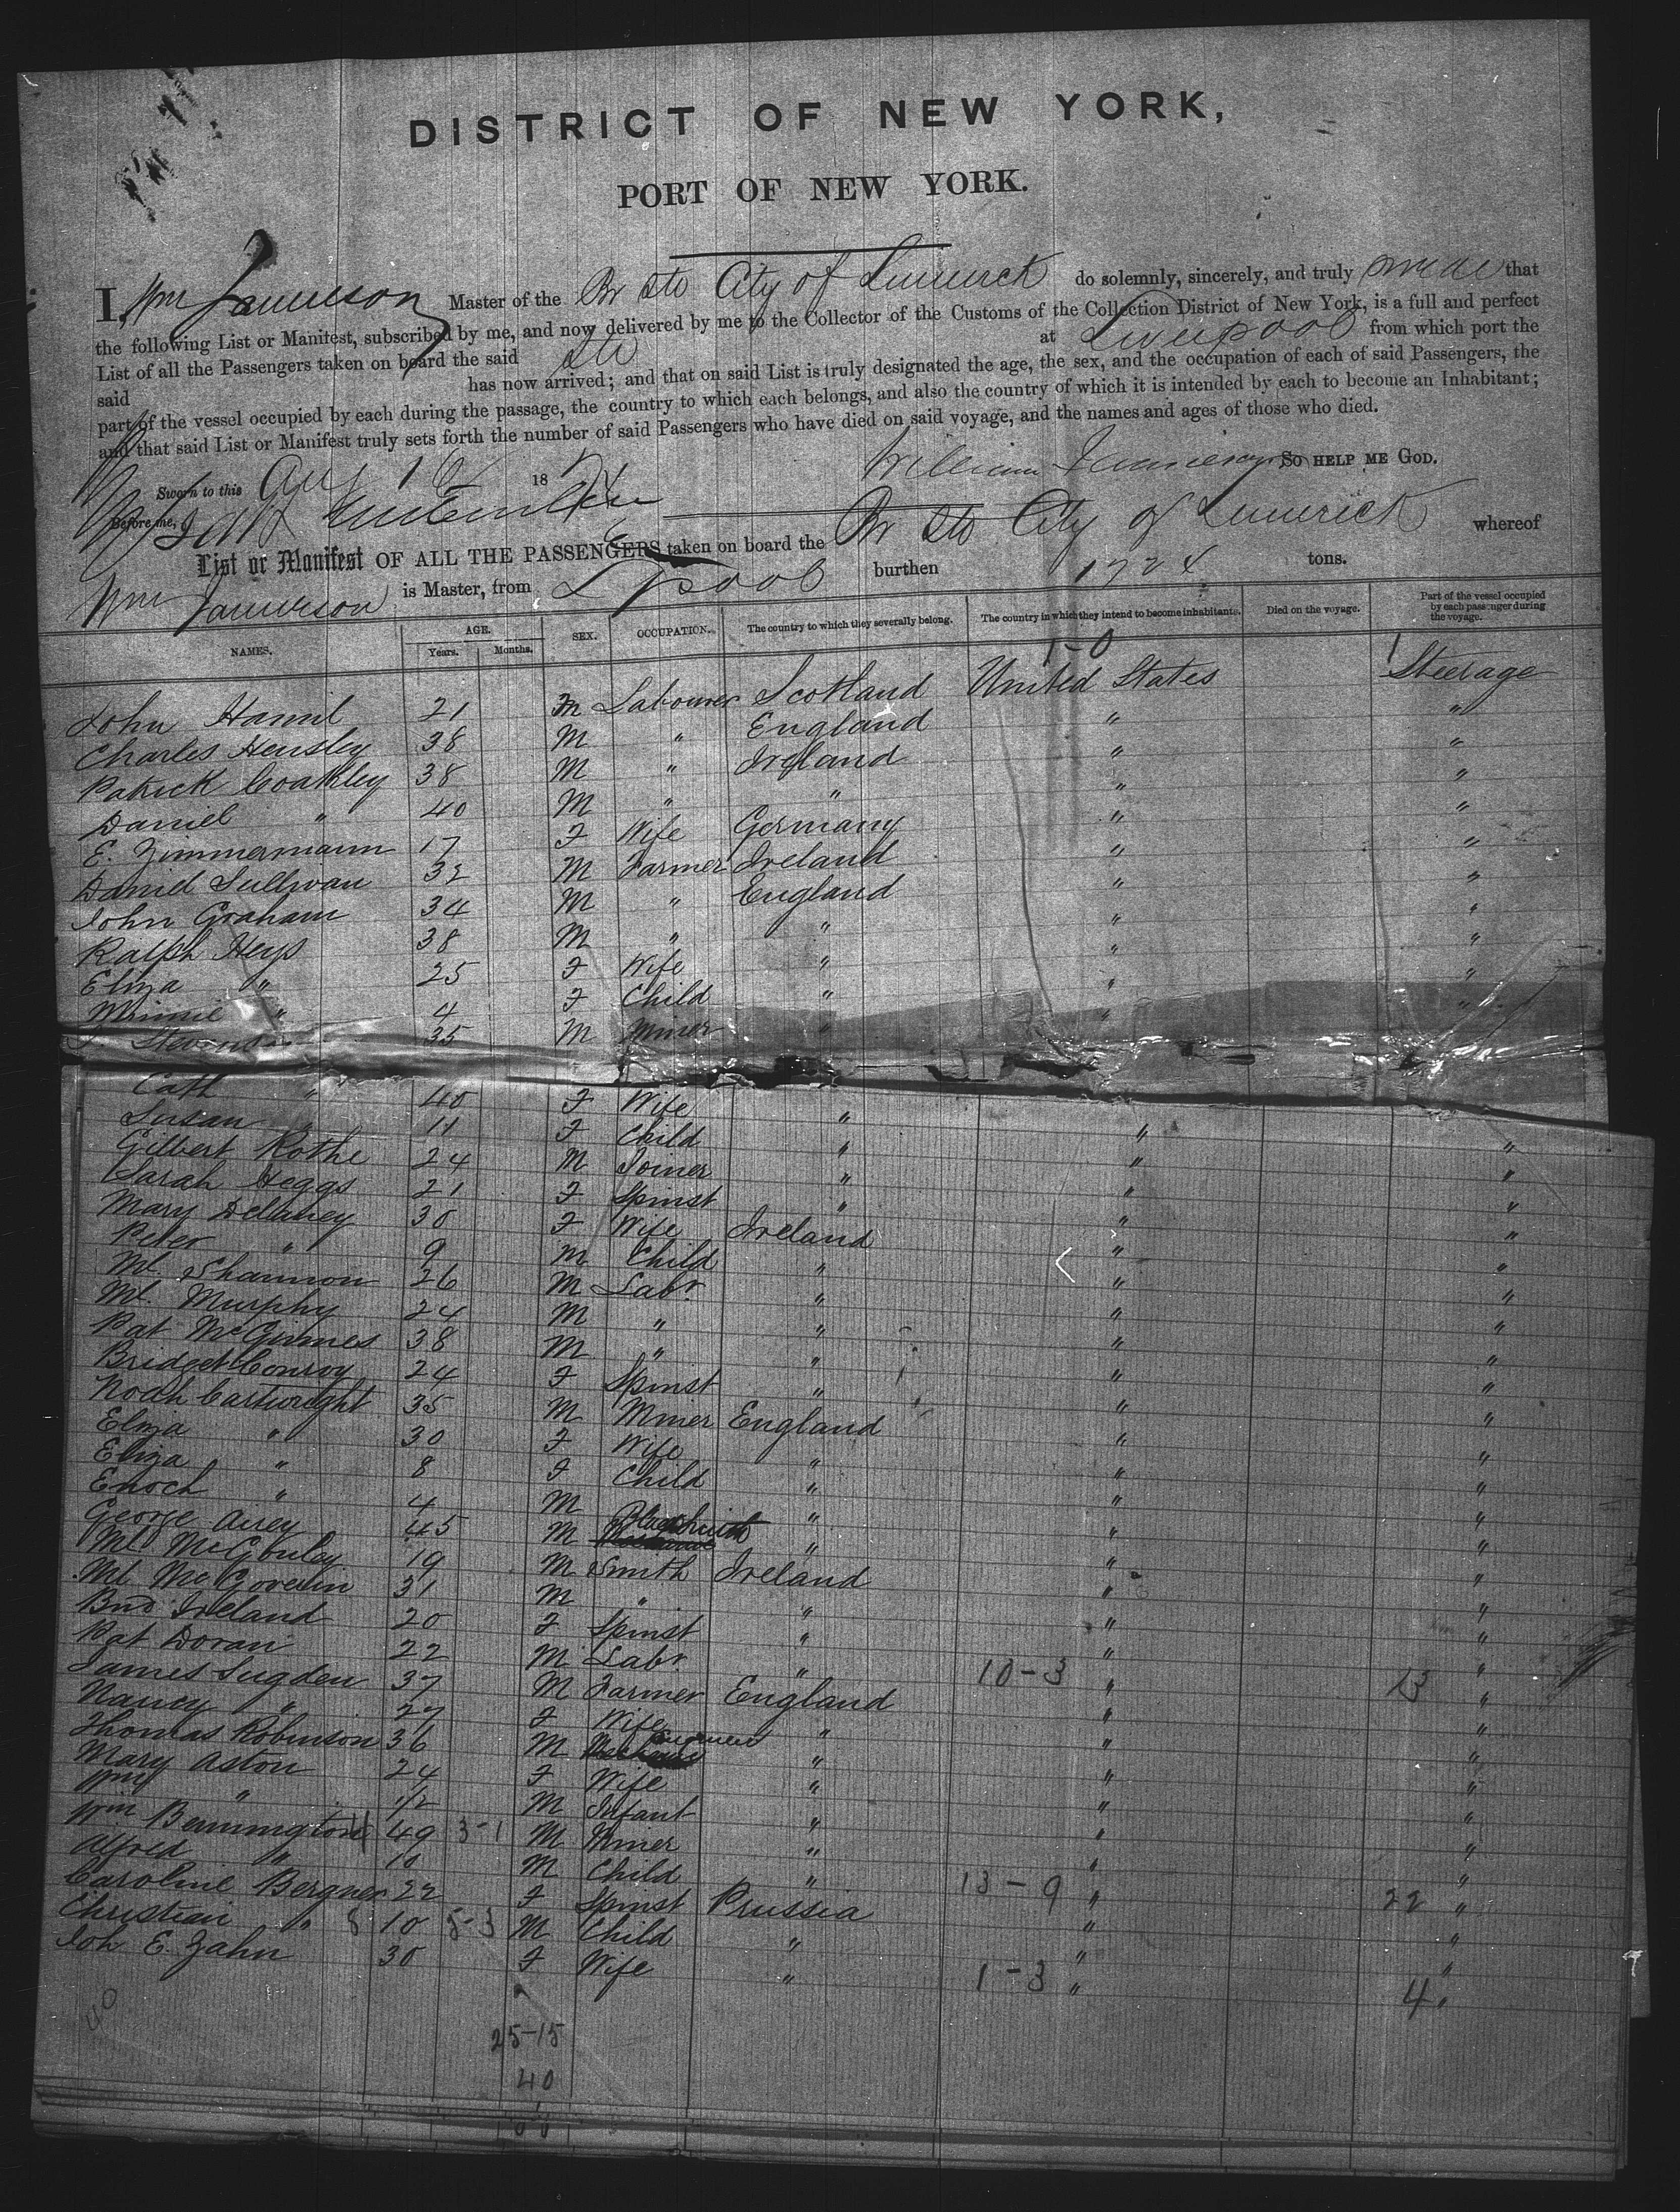 DISTRICT OF NEW YORK,
PORT OF NEW YORK.
I, Wm Jamieson Master of the Br Str City of Limerick do solemnly, sincerely, and truly swear that
the following List or Manifest, subscribed by me, and now delivered by me to the Collector of the Customs of the Collection District of New York, is a full and perfect
List of all the Passengers taken on board the said Str at Liverpool from which port the
said has now arrived; and that on said List is truly designated the age, the sex, and the occupation of each of said Passengers, the
part of the vessel occupied by each during the passage, the country to which each belongs, and also the country of which it is intended by each to become an Inhabitant;
and that said List or Manifest truly sets forth the number of said Passengers who have died on said voyage, and the names and ages of those who died.
William Jamieson SO HELP ME GOD.
Sworn to this Aug 18
Before me,
List or Manifest OF ALL THE PASSENGERS taken on board the Br Str City of Limerick whereof
Wm Jamieson is Master, from Lpool burthen 1724 tons.
NAMES. AGE. Years. Months. SEX. OCCUPATION. The country to which they severally belong. The country in which they intend to become inhabitants. Died on the voyage. Part of the vessel occupied by each passenger during the voyage.
1-0 1
John Hamil 21 M Labourer Scotland United States Steerage
Charles Hensley 38 M " England " "
Patrick Coakley 38 M " Ireland " "
Daniel " 40 M " " " "
E. Zimmermann 17 F Wife Germany " "
Daniel Sullivan 32 M Farmer Ireland " "
John Graham 34 M " England " "
Ralph Heys 38 M " " " "
Eliza " 25 F Wife " " "
Minnie " 4 F Child " " "
Stevens 35 M Miner " " "
Cath " 40 F Wife " " "
Susan " 11 F Child " " "
Gilbert Rothe 24 M Joiner " " "
Sarah Heggs 21 F Spinst " " "
Mary Delaney 30 F Wife Ireland " "
Peter " 9 M Child " " "
Ml Shannon 26 M Labr. " " "
Ml. Murphy 24 M " " " "
Pat McGinnes 38 M " " " "
Bridget Conroy 24 F Spinst " " "
Noah Cartwright 35 M Miner England " "
Eliza " 30 F Wife " " "
Eliza " 8 F Child " " "
Enoch " 4 M " " "
George Airey 45 M Blacksmith " " "
Ml McGouley 19 M Smith Ireland " "
Ml McGovern 31 M " " " "
Bnd Ireland 20 F Spinst " " "
Pat Doran 22 M Labr. " " "
10-3 13
James Sugden 37 M Farmer England " "
Nancy " 27 F Wife " " "
Thomas Robinson 36 M " " "
Mary Aston 24 F Wife " " "
Wm " 1/2 M Infant " " "
Wm Bennington 4 49 3-1 M Miner " " "
Alfred " 10 M Child " " "
13-9 22
Caroline Bergner 22 F Spinst Prussia " "
Christian " 8 10 5-3 M Child " " "
Joh E. Zahn 30 F Wife " " "
1-3 4
40
25-15
40
00